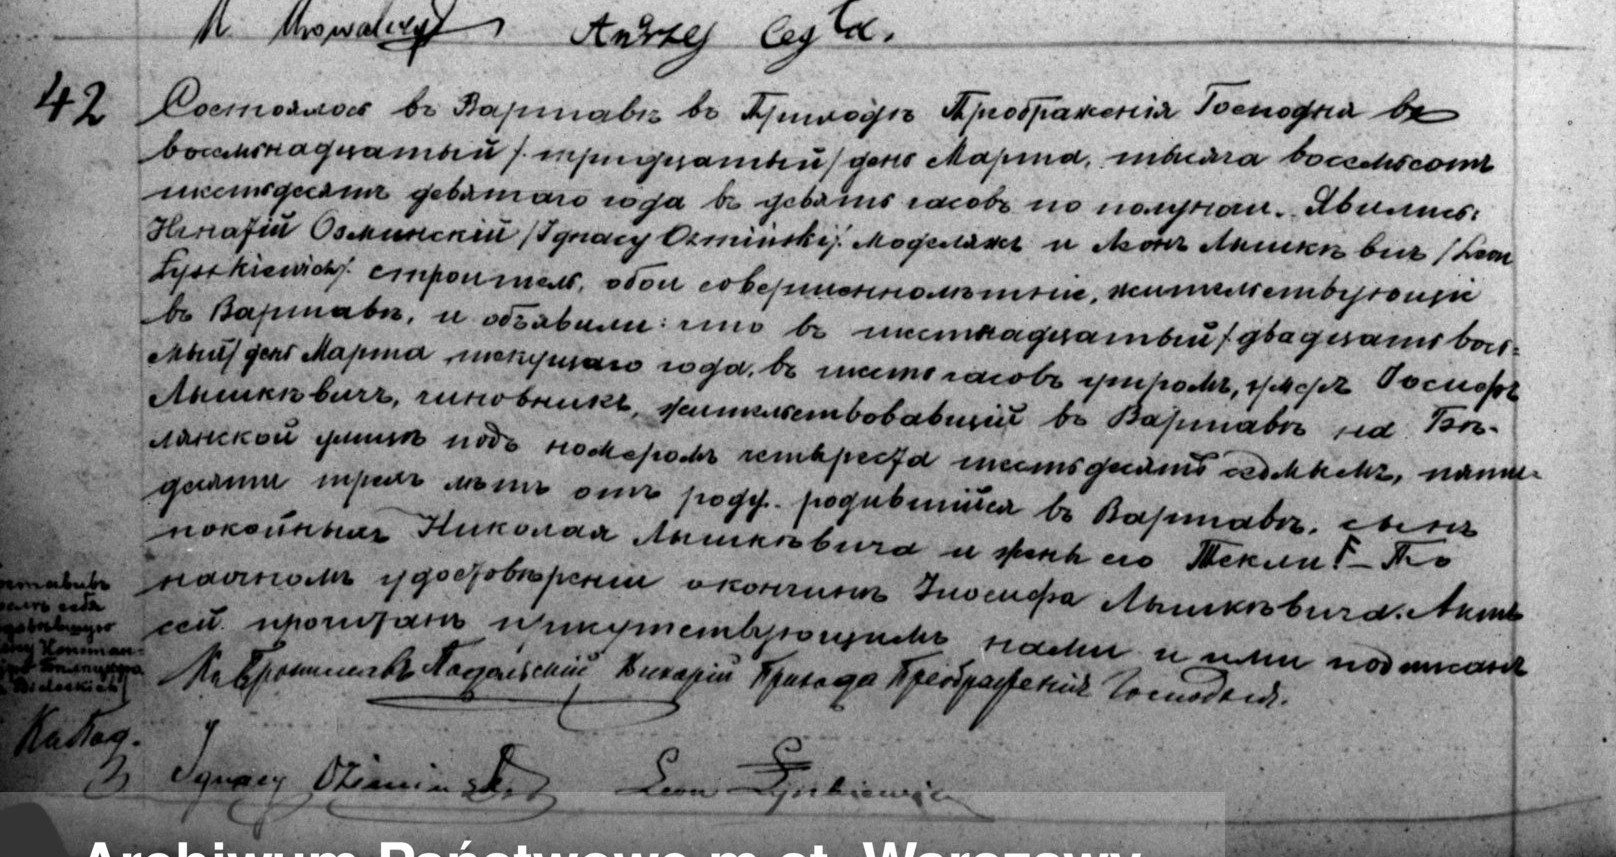 Andrzej Cegła.
42
Состоялось въ Варшавѣ въ Приходѣ Преображенія Господня въ
восемнадцатый /:тридцатый/ день Марта, тысяча восемьсотъ
шестьдесятъ девятаго года въ девять часовъ по полудни. Явились:
Игнатій Озминскій /Ignacy Ozmiński/: и Леонъ Лышкѣвичъ /Leon
Lyszkiewicz/: строитель, обои совершеннолѣтніе, жительствующіе
въ Варшавѣ, и объявили: что въ шестнадцатый /:двадцать вось-
мый/ день Марта текущаго года, въ шесть часовъ утромъ, умеръ Іосифъ
Лышкѣвичъ, чиновникъ, жительствовавшій въ Варшавѣ на Бѣ-
лянской улицѣ подъ номеромъ четыреста шестьдесятъ седмымъ, пяти-
десяти трехъ лѣтъ отъ роду. родившійся въ Варшавѣ. сынъ
покойныхъ Николая Лышкѣвича и жены его Текли По
наочномъ удостовѣреніи о кончинѣ Іосифа Лышкѣвича. Актъ
сей прочитанъ присутствующимъ нами и ими подписанъ
Кс Брониславъ Подольскій Викарій Прихода Преображенія Господня.
оставивъ
Кс Под.
Ignacy Oźmiński Leon Łyszkiewicz
Archiwum Państwowe m.st. Warszawy